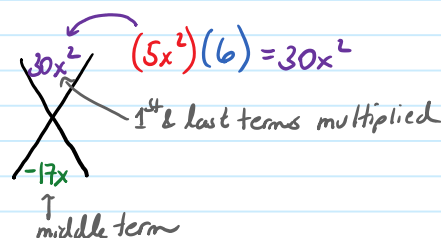 (5x²)(6) = 30x²
30x²
1st & last terms multiplied
-17x
middle term